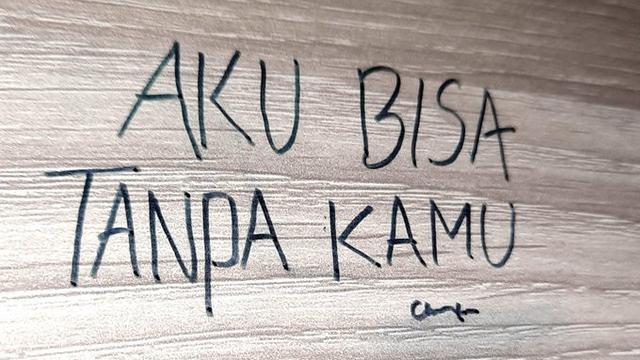 AKU BISA
TANPA KAMU